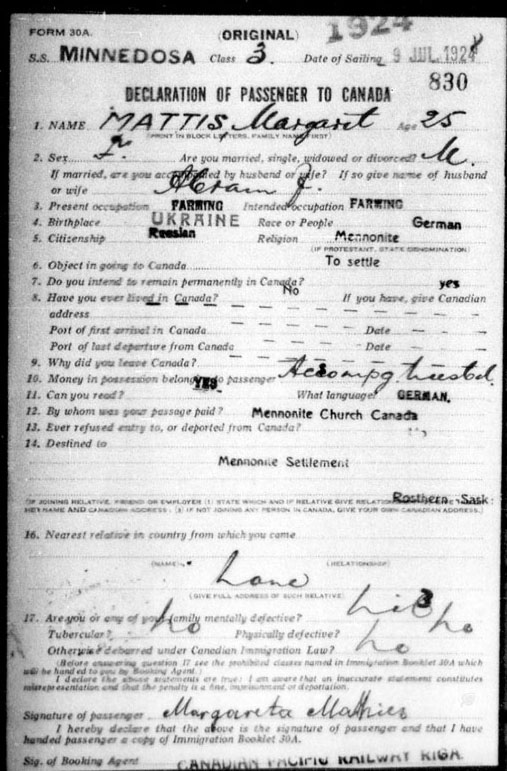 1924
FORM 30A. (ORIGINAL)
S.S. MINNEDOSA Class 3. Date of Sailing 9 JUL. 1924
830
DECLARATION OF PASSENGER TO CANADA
1. NAME MATTIS, Margaret Age 25
(PRINT IN BLOCK LETTERS, FAMILY NAME FIRST)
2. Sex F. Are you married, single, widowed or divorced? M.
If married, are you accompanied by husband or wife? If so give name of husband
or wife Abram J.
3. Present occupation FARMING Intended occupation FARMING
4. Birthplace UKRAINE Race or People German
5. Citizenship Russian Religion Mennonite
(IF PROTESTANT, STATE DENOMINATION)
6. Object in going to Canada To settle
7. Do you intend to remain permanently in Canada? yes
8. Have you ever lived in Canada? No If you have, give Canadian
address
Port of first arrival in Canada Date
Port of last departure from Canada Date
9. Why did you leave Canada?
10. Money in possession belonging to passenger Accompg. husbd.
11. Can you read? YES What language? GERMAN.
12. By whom was your passage paid? Mennonite Church Canada
13. Ever refused entry to, or deported from Canada?
14. Destined to
Mennonite Settlement
Rosthern Sask:
(IF JOINING RELATIVE, FRIEND OR EMPLOYER (1) STATE WHICH AND IF RELATIVE GIVE
NAME AND CANADIAN ADDRESS. (2) IF NOT JOINING ANY PERSON IN CANADA, GIVE YOUR OWN CANADIAN ADDRESS.)
16. Nearest relative in country from which you came
(NAME) (RELATIONSHIP)
(GIVE FULL ADDRESS OF SUCH RELATIVE)
17. Are you or any of your family mentally defective? no
Tubercular? no Physically defective?
Otherwise debarred under Canadian Immigration Law? no
(Before answering question 17 see the prohibited classes named in Immigration Booklet 30A which
will be handed to you by Booking Agent.)
I declare the above statements are true: I am aware that an inaccurate statement constitutes
misrepresentation and that the penalty is a fine, imprisonment or deportation.
Signature of passenger Margareta Mathies
I hereby declare that the above is the signature of passenger and that I have
handed passenger a copy of Immigration Booklet 30A.
Sig. of Booking Agent CANADIAN PACIFIC RAILWAY RIGA.